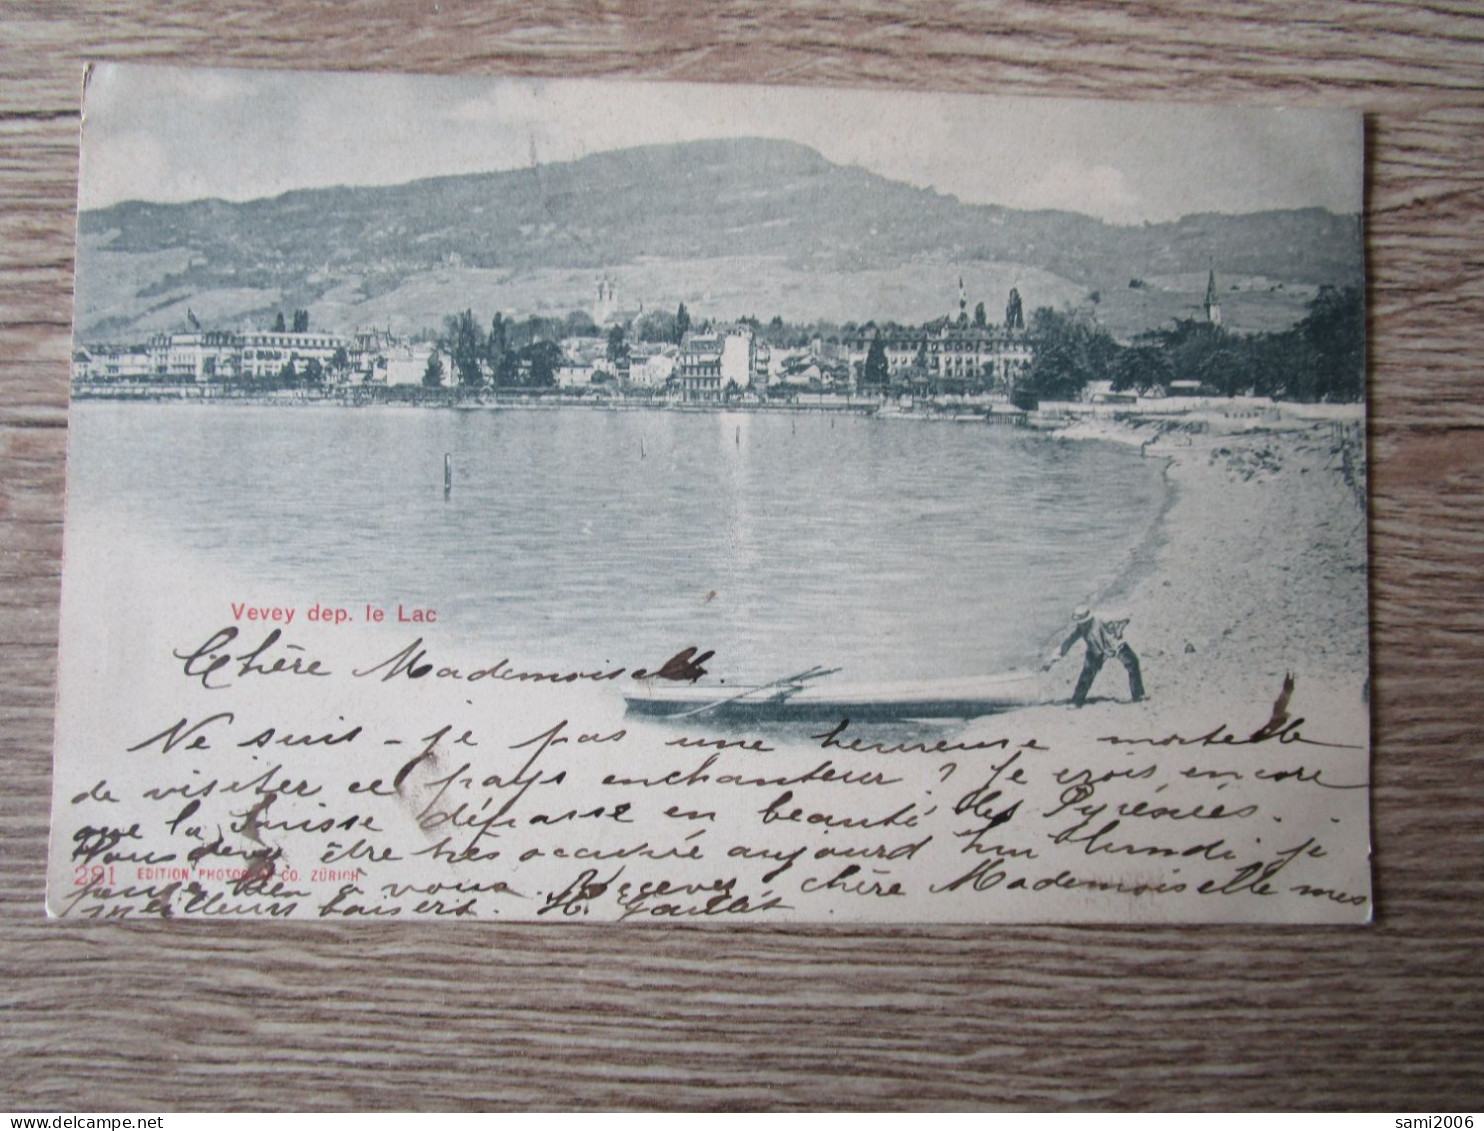 Vevey dep. le Lac
Chère Mademoiselle.
Ne suis-je pas une heureuse mortelle
de visiter ce pays enchanteur ? Je crois encore
que la Suisse dépasse en beauté les Pyrénées.
Vous devez être très occupée aujourd'hui lundi, je
pense bien à vous. Recevez, chère Mademoiselle mes
meilleurs baisers. H.
281 EDITION PHOTOGLOB CO. ZÜRICH
sami2006